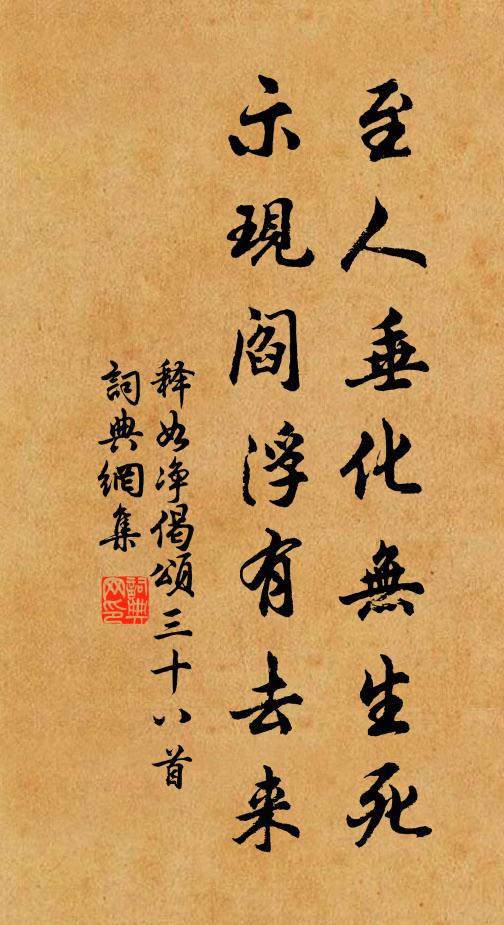 至人垂化無生死
示現閻浮有去来
释如净偈頌三十八首
詞典網集
詞典網印